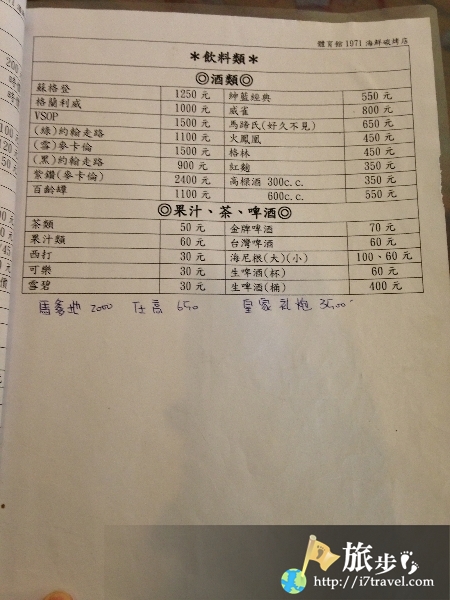 體育館1971海鮮碳烤店
＊飲料類＊
◎酒類◎
蘇格登 1250 元 紳藍經典 550 元
格蘭利威 1000 元 威雀 800 元
VSOP 1500 元 馬諦氏(好久不見) 650 元
(綠)約翰走路 1100 元 火鳳凰 450 元
(雪)麥卡倫 1500 元 格林 450 元
(黑)約翰走路 900 元 紅麴 350 元
紫鑽(麥卡倫) 2400 元 高樑酒 300c.c. 350 元
百齡罈 1100 元 600c.c. 550 元
◎果汁、茶、啤酒◎
茶類 50 元 金牌啤酒 70 元
果汁類 60 元 台灣啤酒 60 元
西打 30 元 海尼根(大)(小) 100、60 元
可樂 30 元 生啤酒(杯) 60 元
雪碧 30 元 生啤酒(桶) 400 元
馬爹地 2000 仕高 650 皇家礼炮 3500
旅步
http://i7travel.com/